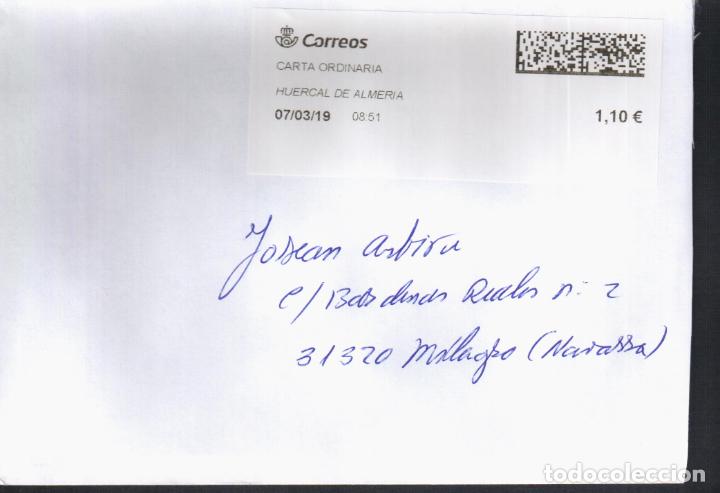 Correos
CARTA ORDINARIA
HUERCAL DE ALMERIA
07/03/19 08:51
1,10 €
Josean
C/ Bardenas Reales nº 2
31320 Milagro (Navarra)
todocoleccion